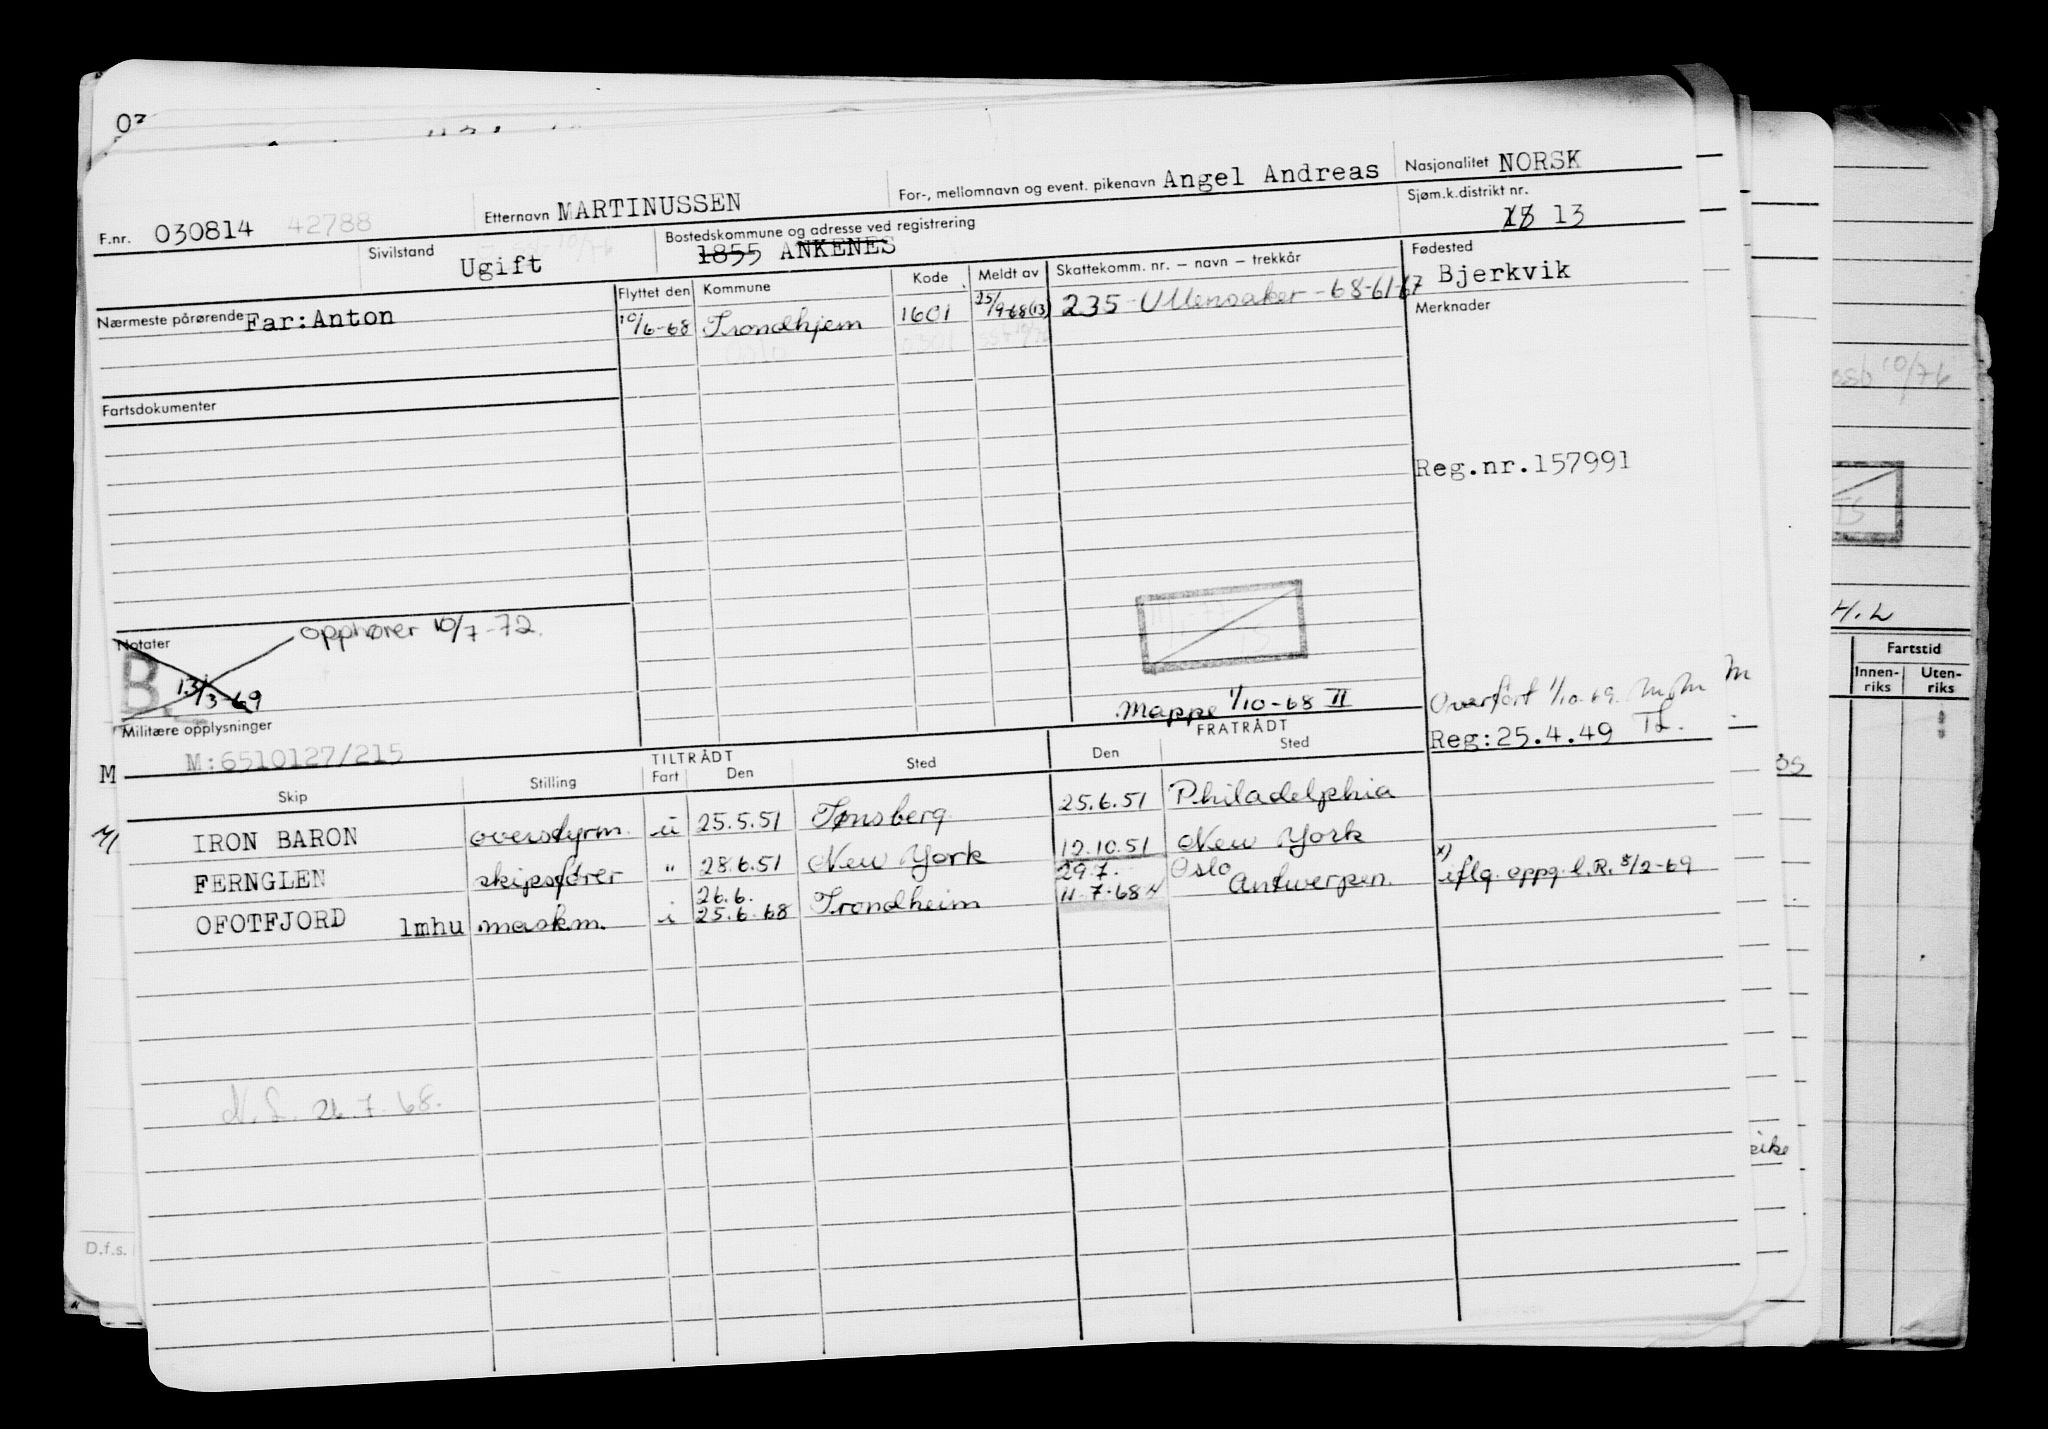 03
F.nr. 030814 42788 Etternavn MARTINUSSEN For-, mellomnavn og event. pikenavn Angel Andreas Nasjonalitet NORSK
Sivilstand Ugift Bostedskommune og adresse ved registrering 1855 ANKENES Sjøm.k.distrikt nr. 13
Nærmeste pårørende Far:Anton Flyttet den Kommune Kode Meldt av Skattekomm. nr. – navn – trekkår Fødested Bjerkvik
10/6-68 Trondhjem 1601 25/9-68(13) 235 - Ullensaker - 68-61-67 Merknader
Oslo 0301
Fartsdokumenter
Reg.nr.157991
Notater opphører 10/7-72.
B 13/3-69
Mappe 1/10-68 II Overført 1/10-69.
Militære opplysninger Reg:25.4.49
M M:6510127/215
TILTRÅDT FRATRÅDT
Skip Stilling Fart Den Sted Den Sted
IRON BARON overstyrm. u 25.5.51 Tønsberg 25.6.51 Philadelphia
FERNGLEN skipsfører " 28.6.51 New York 12.10.51 New York
26.6. 29.7. Oslo
OFOTFJORD lmhu maskm. i 25.6.68 Trondheim 11.7.68 Antwerpen. x) iflg. oppg. l.R. 8/2-69
N.L. 26.7.68.
10/76
H.L
Fartstid
Innen-riks Uten-riks
eike
D.f.s.